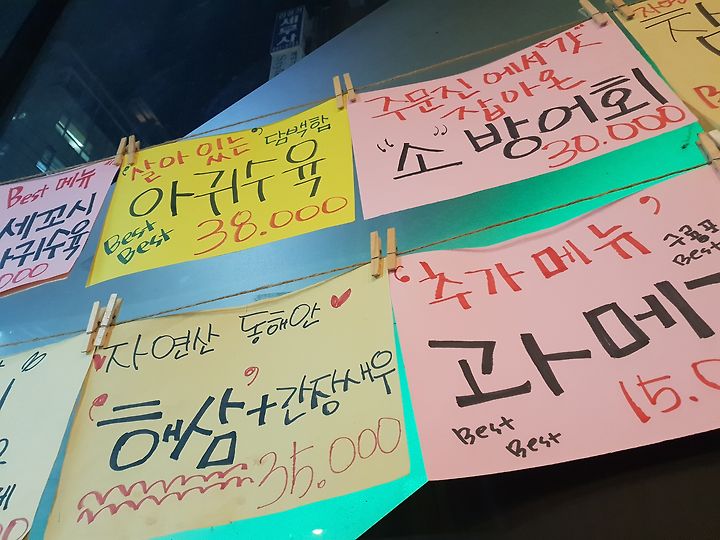 Best 메뉴
세꼬시
아귀수육
000
"살아 있는" 담백함
아귀수육
Best
Best
38.000
주문진에서 "갓"
잡아온
"소" 방어회
30.000
"자연산 동해안
"해삼"+간장새우
35.000
"추가 메뉴"
구룡포
Best
과메
15.0
Best
Best